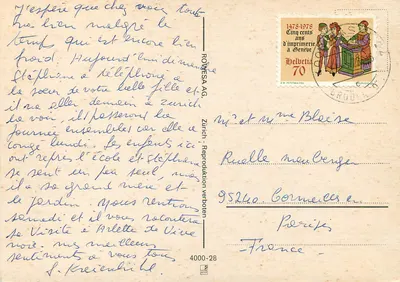 J'espère que chez vous toute
va bien malgré le
temps qui est encore bien
froid. Aujourd'hui dimanche
Stéphane a téléphoné à
la sœur de votre belle fille et
il va aller demain à Zurich
la voir, il passeront la
journée ensemble car elle a
congé lundi. Les enfants ici
ont repris l'école et Stéphane
se sent un peu seul, mais
il a sa grand mère et
le jardin. Nous rentrons
samedi et il vous racontera
sa visite à Arlette de Vive
voix. Mes meilleurs
sentiments à vous tous
ROTHESA AG.
Zürich - Reproduktion verboten
4000-28
1478-1978
Cinq cents
ans
d'imprimerie
à Genève
Helvetia
70
Mr et Mme Blaise
Ruelle
95240 Cormeilles en
Parisis
France